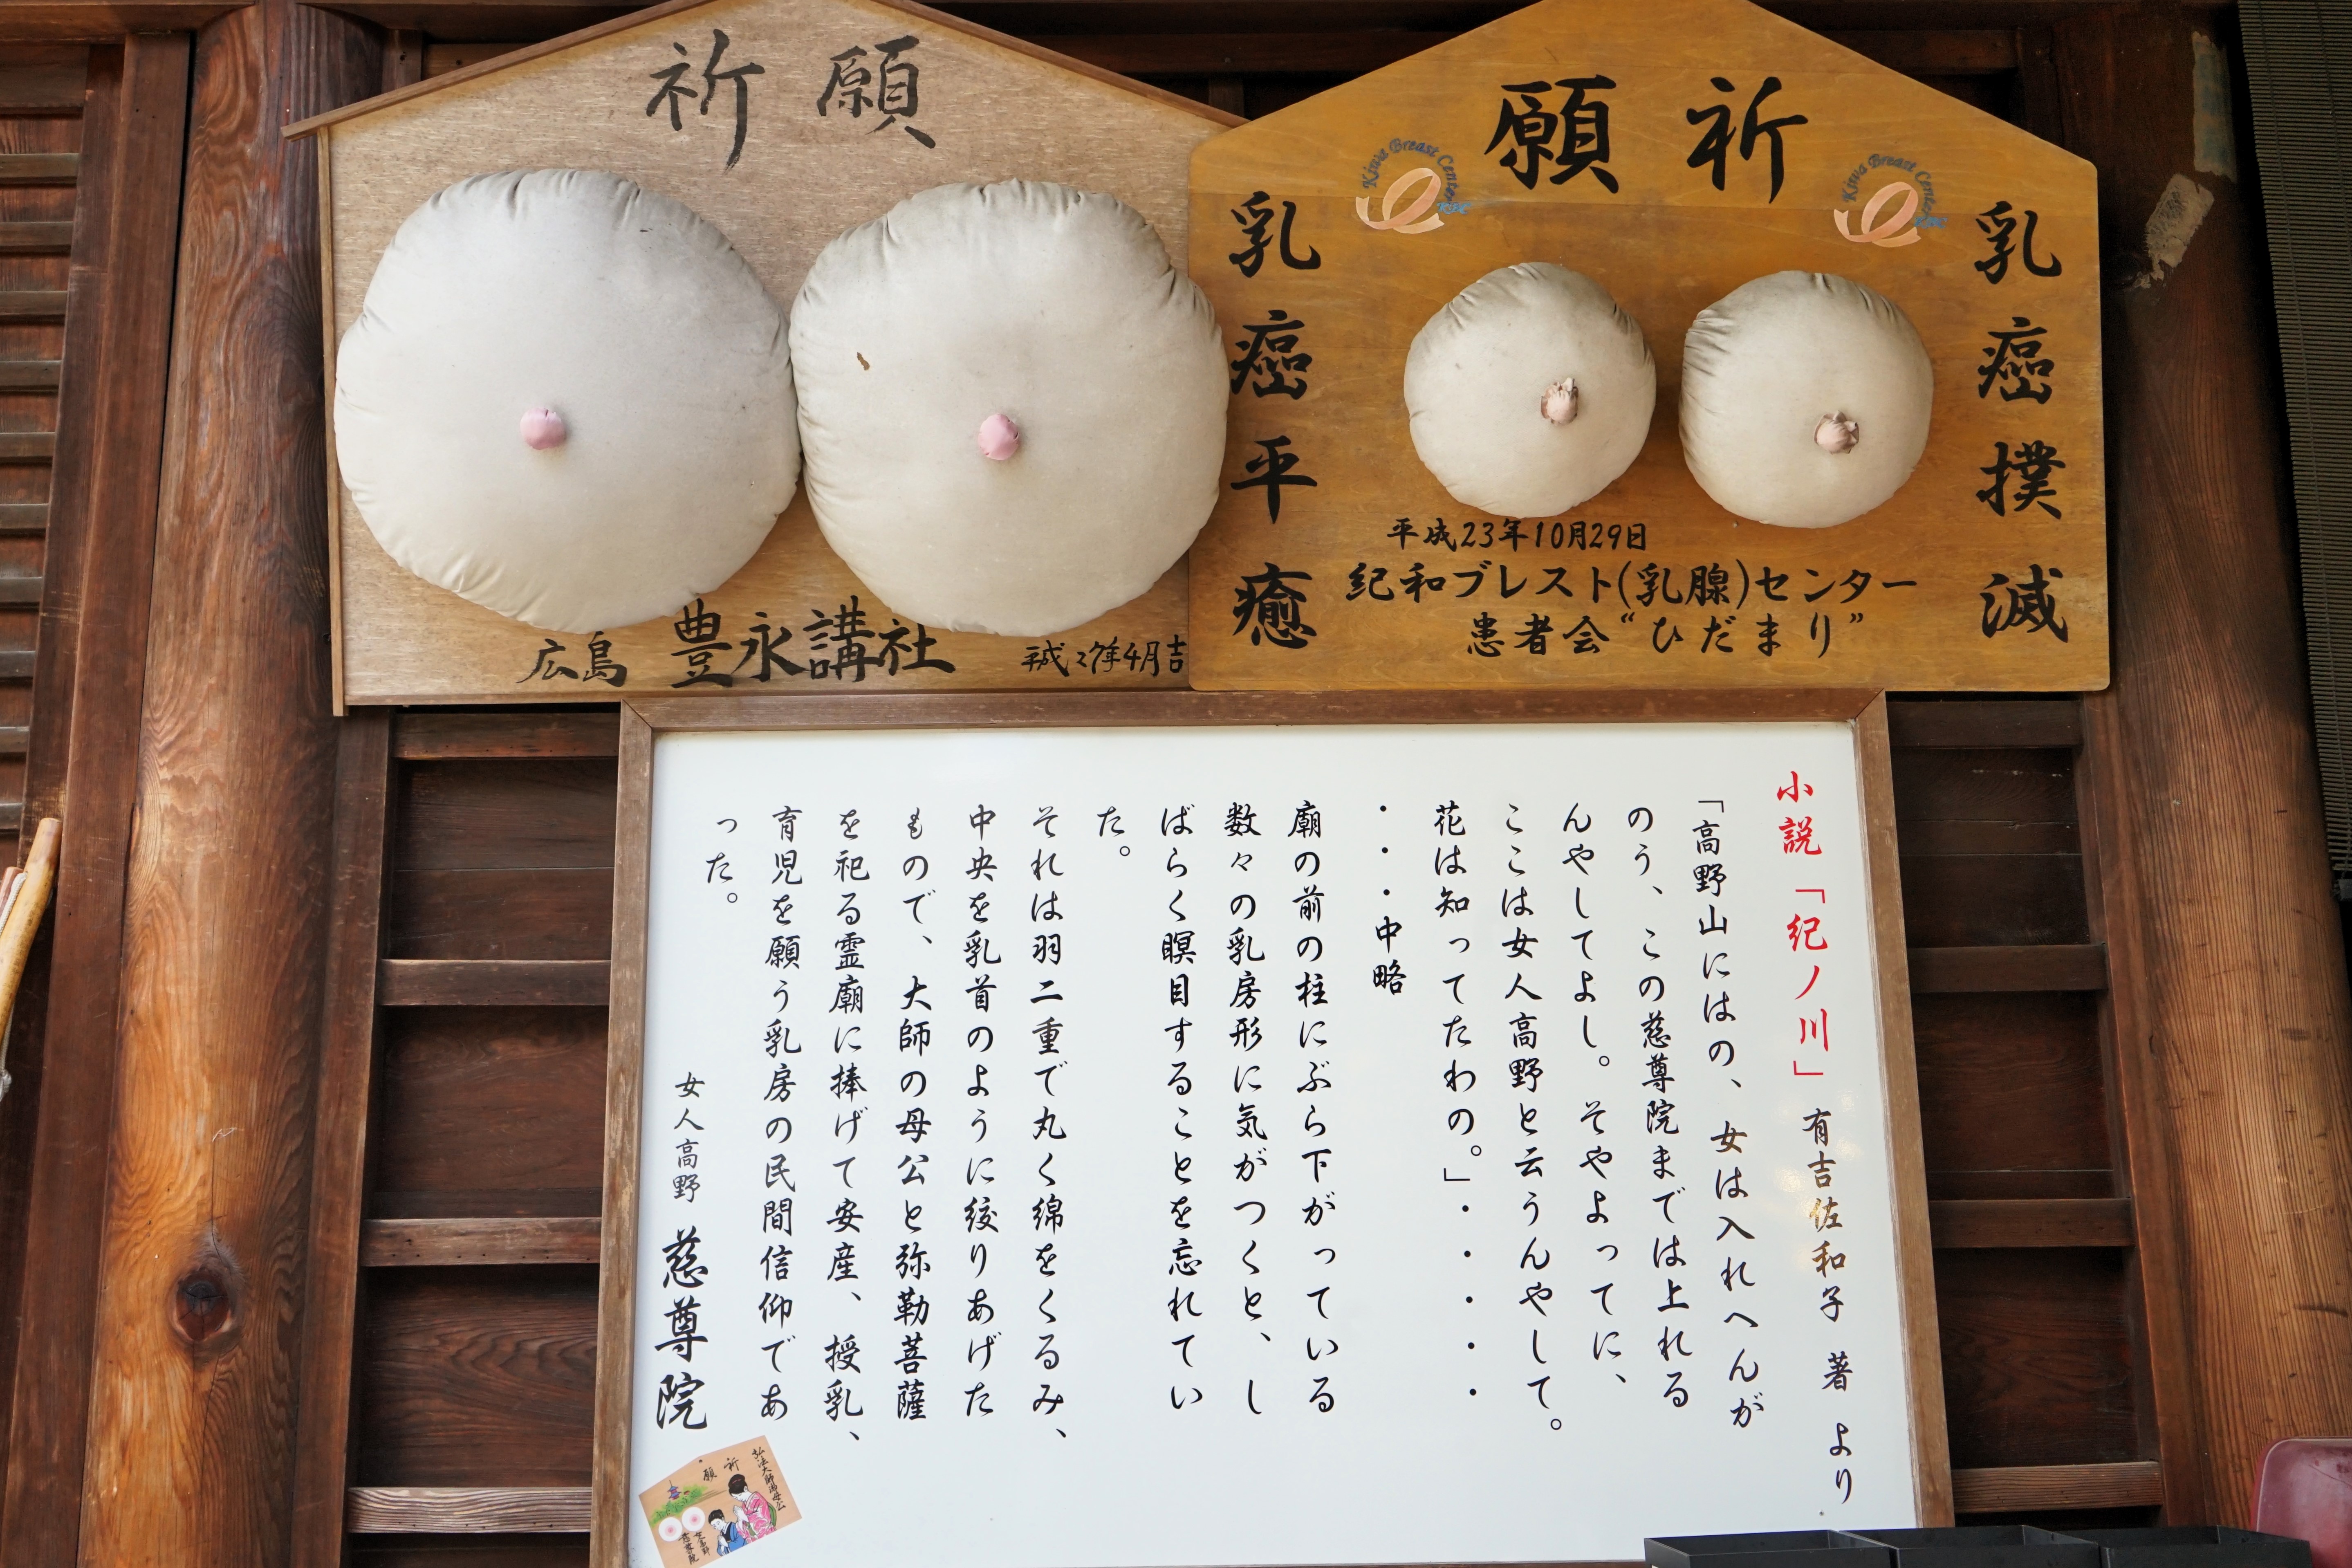 祈願
広島 豊永講社
平成27年4月吉
願祈
Kiwa Breast Center
KBC
Kiwa Breast Center
KBC
乳癌撲滅
乳癌平癒
平成23年10月29日
紀和ブレスト(乳腺)センター
患者会“ひだまり”
小説「紀ノ川」 有吉佐和子 著 より
「高野山にはの、女は入れへんが
のう、この慈尊院までは上れる
んやしてよし。そやよってに、
ここは女人高野と云うんやして。
花は知ってたわの。」・・・・・
・・・中略
廟の前の柱にぶら下がっている
数々の乳房形に気がつくと、し
ばらく瞑目することを忘れてい
た。
それは羽二重で丸く綿をくるみ、
中央を乳首のように絞りあげた
もので、大師の母公と弥勒菩薩
を祀る霊廟に捧げて安産、授乳、
育児を願う乳房の民間信仰であ
った。
女人高野 慈尊院
祈願
弘法大師御母公
女人高野
慈尊院